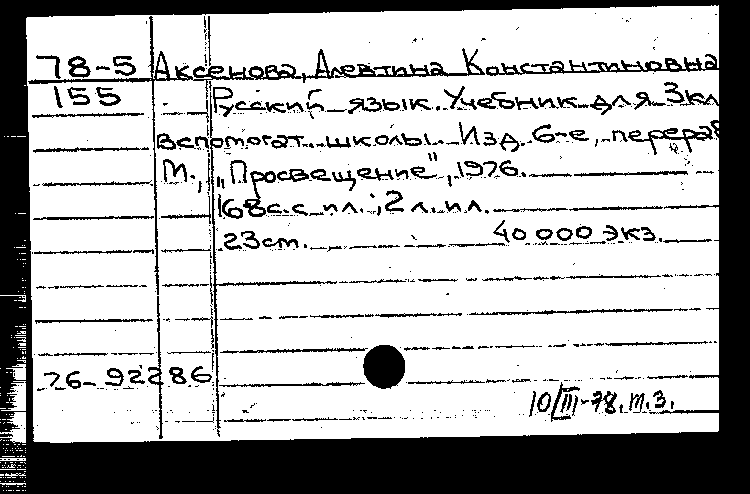 78-5 Аксенова, Алевтина Константиновна
155 Русский язык. Учебник для 3кл
вспомогат. школы. Изд. 6-е, перераб
М., „Просвещение", 1976.
168с. с ил.; 2 л. ил.
23см. 40 000 экз.
76-92286
10/III-78. т.З.